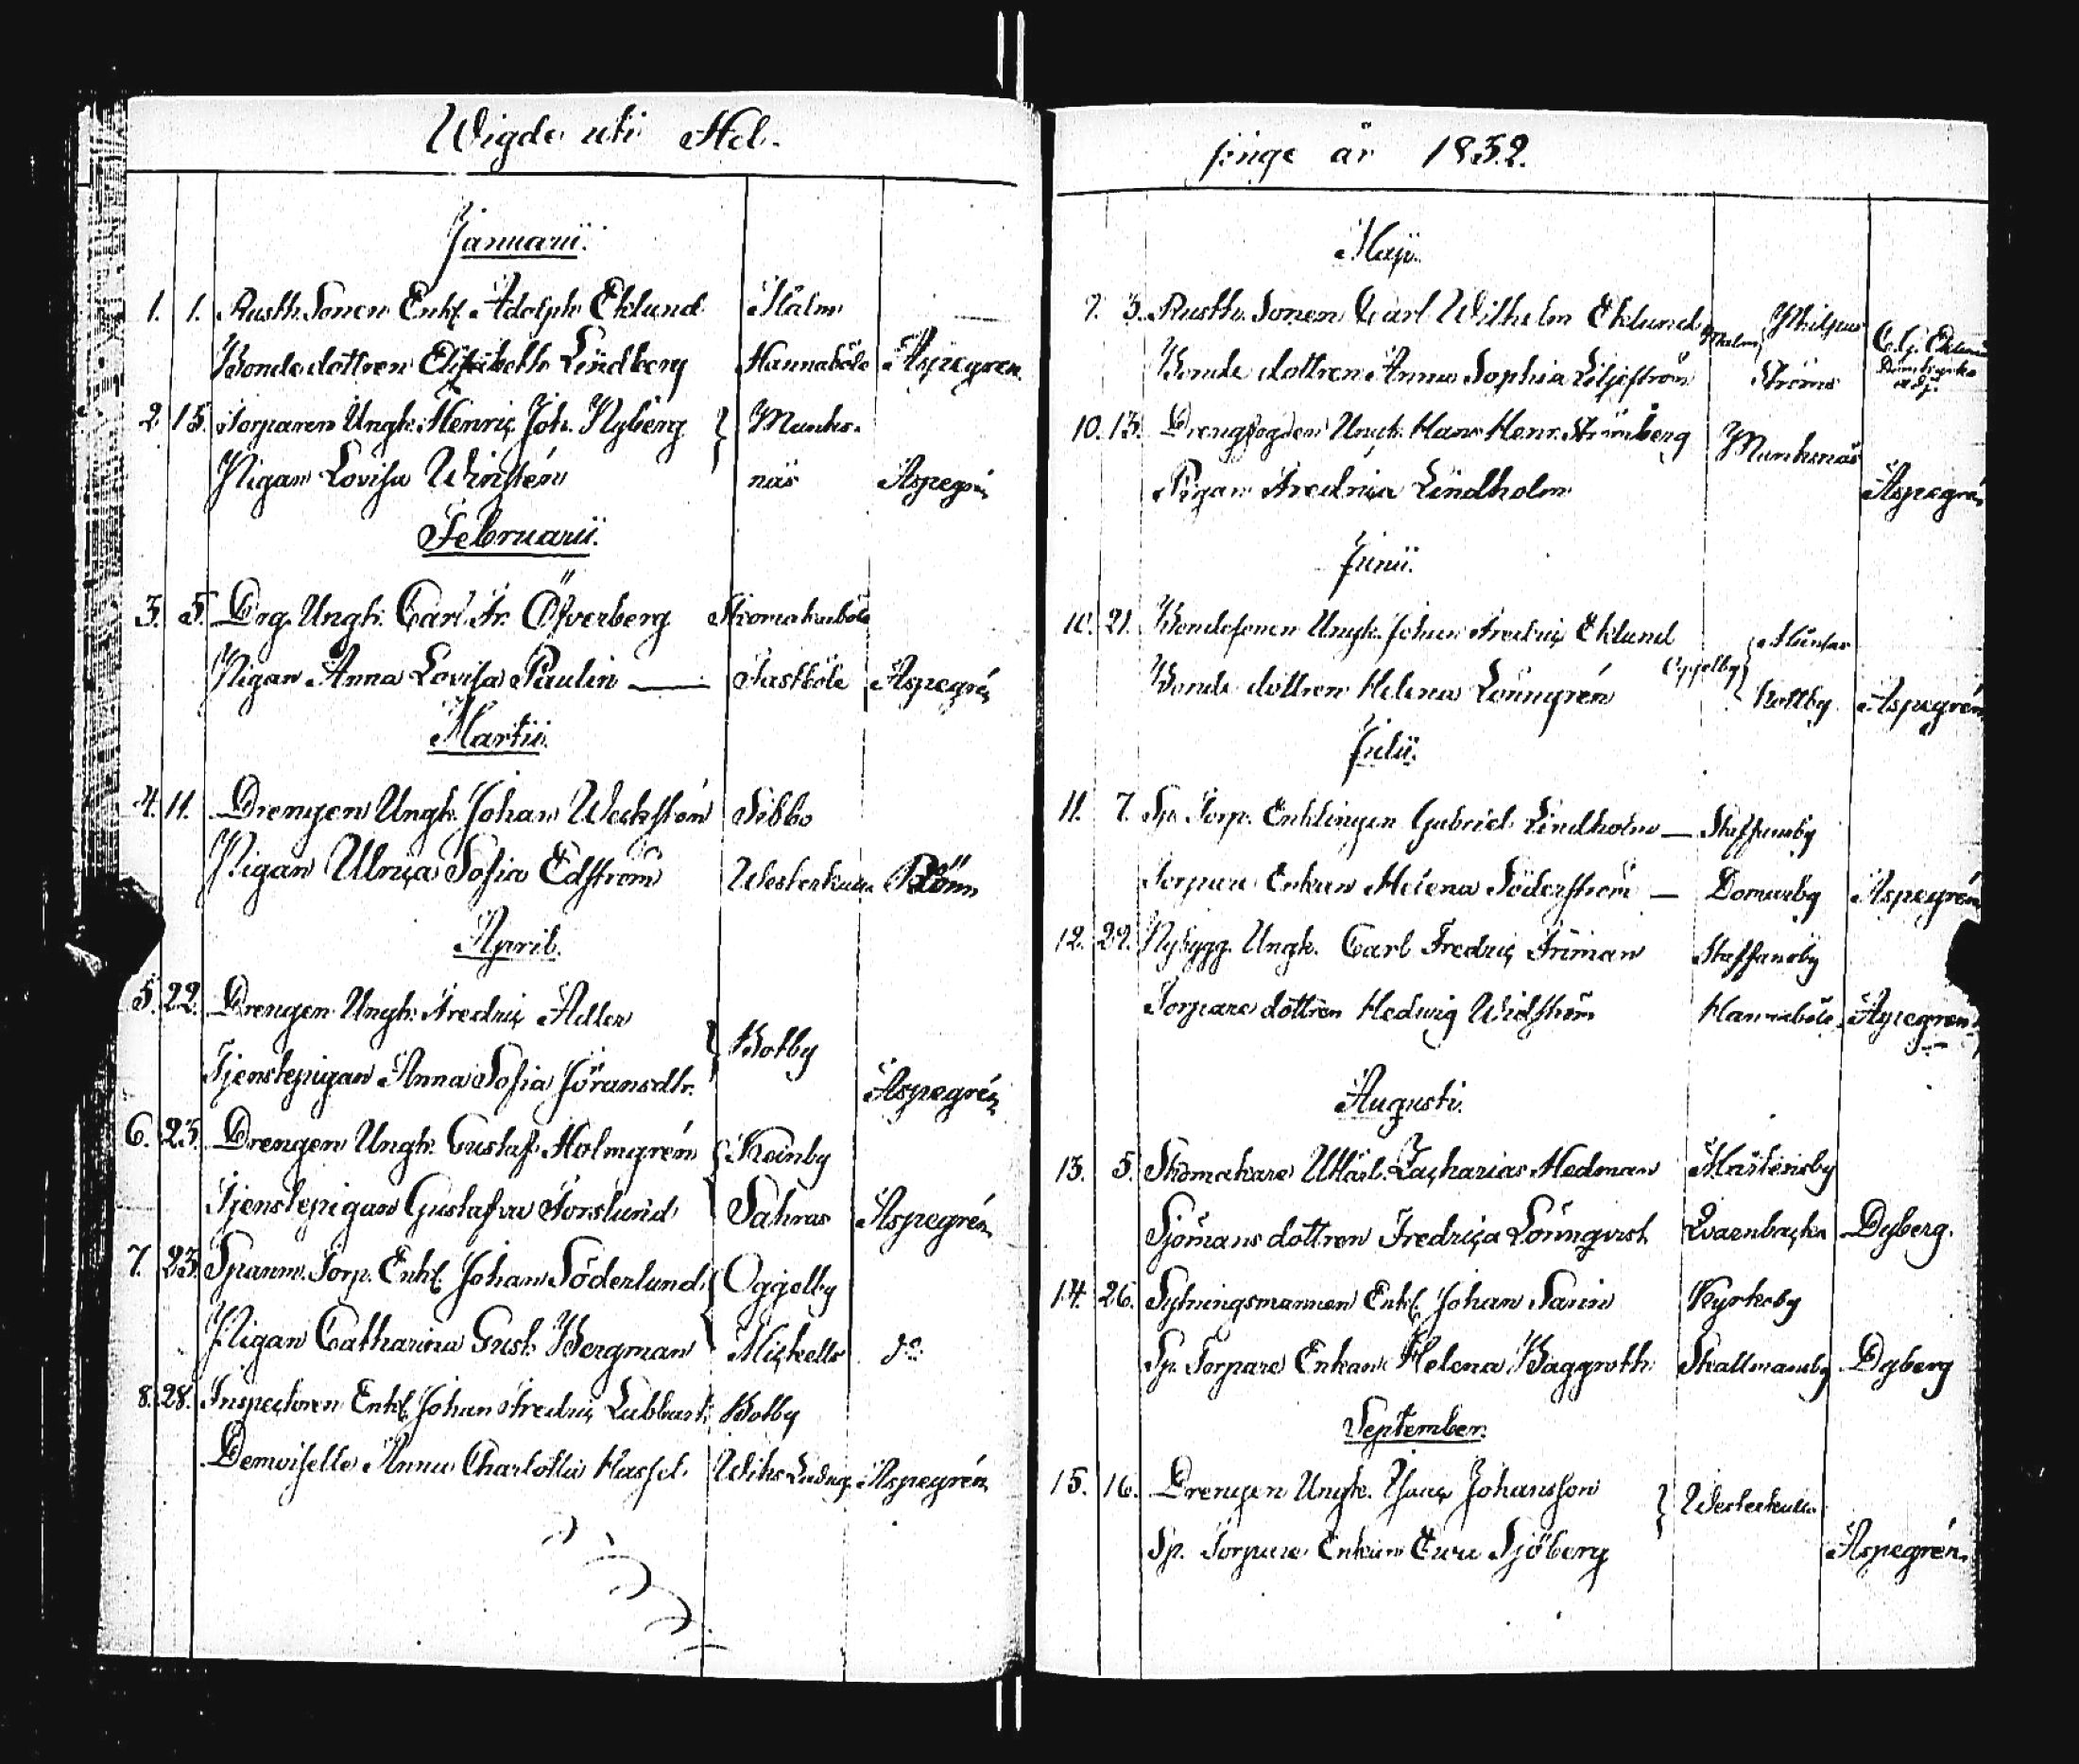 Wigde uti Hel-
Januarii.
1. 1. Rusth. Sonen Enkl. Adolph Eklund Malm
Bonde dottren Elisabeth Lindberg Hannaböle Aspegren
2. 15. Torparen Ungk. Henriç Joh. Nyberg } Munks-
Pigan Lovisa Winstén näs Aspegrén
Februarii.
3. 5. Drg. Ungk. Carl Fr. Öfverberg Skomakarböle
Pigan Anna Lovisa Paulin — Tastböle Aspegrén
Martii.
4. 11. Drengen Ungk. Johan Weckstén Sibbo
Pigan Ulriça Sofia Edström Westerkulla Rönn
April.
5. 22. Drengen Ungk. Fredriç Adler } Botby
Tjenstepigan Anna Sofia Jöransdtr. Aspegrén
6. 23. Drengen Ungk. Gustaf Holmgrén Reinby
Tjenstepigan Gustafva Forslund Sahras Aspegrén
7. 23. Spanm. Torp. Enkl. Johan Söderlund Oggelby
Pigan Catharina Gust. Bergman Miçkels do
8. 28. Inspectoren Enkl. Johan Fredriç Lubbart Botby
Demoiselle Anna Charlotta Hassel Wiks Aspegrén
singe år 1852.
Maji.
9. 3. Rusth. Sonen Carl Wilhelm Eklund Malm
Bonde dottren Anna Sophia Liljeström Ströms C. G. Eklund
10. 13. Drengfogden Ungk. Hans Henr. Strömberg Munksnäs
Pigan Fredriça Lindholm Aspegrén
Junii.
10. 21. Bondesonen Ungk. Johan Fredriç Eklund
Bonde dottren Helena Lönngrén Oggelby Nottby Aspegrén
Julii.
11. 7. Sp. Torp. Enklingen Gabriel Lindholm — Staffansby
Torpare Enkan Helena Söderström — Domarby Aspegrén
12. 22. Nybygg. Ungk. Carl Fredriç Friman Staffansby
Torpare dottren Hedwig Widström Hannaböle Aspegren
Augusti.
13. 5. Skomakare Zacharias Hedman Mårtensby
Sjömans dottren Fredriça Lönnqvist Qvarnbaçka Dyberg.
14. 26. Sytningsmannen Enkl. Johan Sarin Kyrkoby
Sp. Torpare Enkan Helena Baggroth Skattmansby Dyberg
September.
15. 16. Drengen Ungk. Isaaç Johansson } Westerkulla
Sp. Torpare Enkan Ewa Sjöberg Aspegrén.